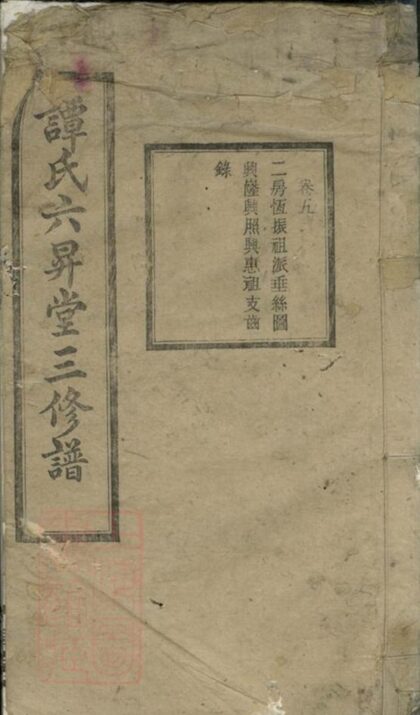 譚氏六昇堂三修譜
卷五
二房恆振祖派垂絲圖
興隆興照興惠祖支齒
錄